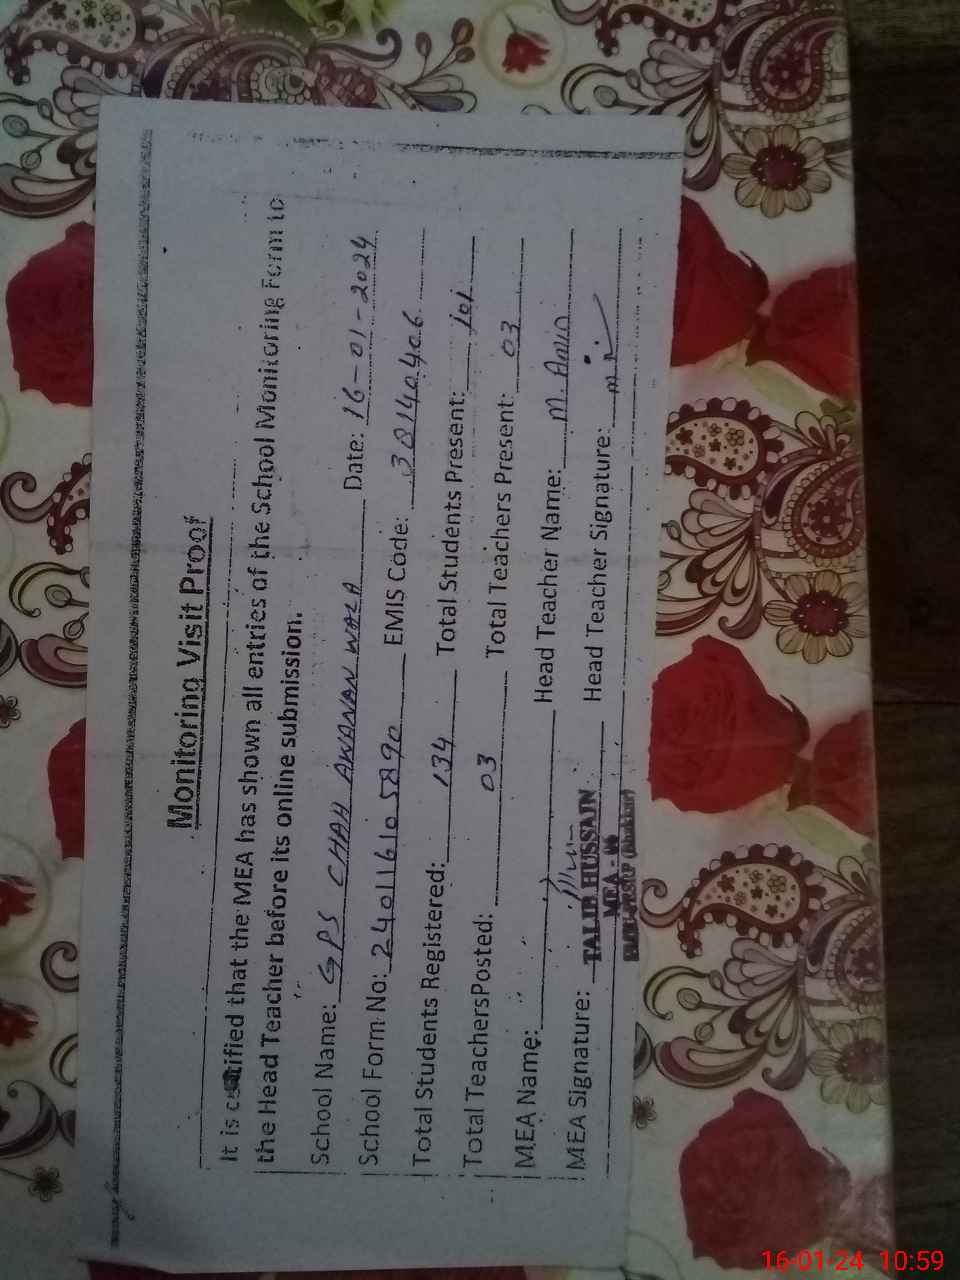 Monitoring Visit Proof
It is certified that the MEA has shown all entries of the School Monitoring Form to
the Head Teacher before its online submission.
School Name: GPS CHAH AWANAN WALA Date: 16-01-2024
School Form No: 240116105890 EMIS Code: 38140406
Total Students Registered: 134 Total Students Present: 101
Total Teachers Posted: 03 Total Teachers Present: 03
MEA Name: Head Teacher Name: M. Amin
MEA Signature: Head Teacher Signature:
TALIB HUSSAIN
MEA -
16-01-24 10:59